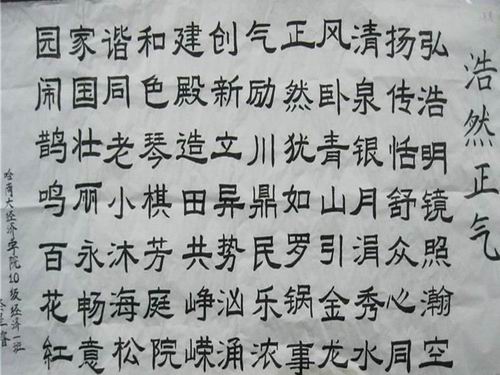 浩然正气
弘浩明镜照瀚空
扬传恬舒众心同
清泉银月涓秀水
风卧青山引金龙
正然犹如罗锅事
气励川鼎民乐浓
创新立异势汹涌
建殿造田共峥嵘
和色琴棋芳庭院
谐同老小沐海松
家国壮丽永畅意
园闹鹊鸣百花红
哈商大经济学院10级经济一班